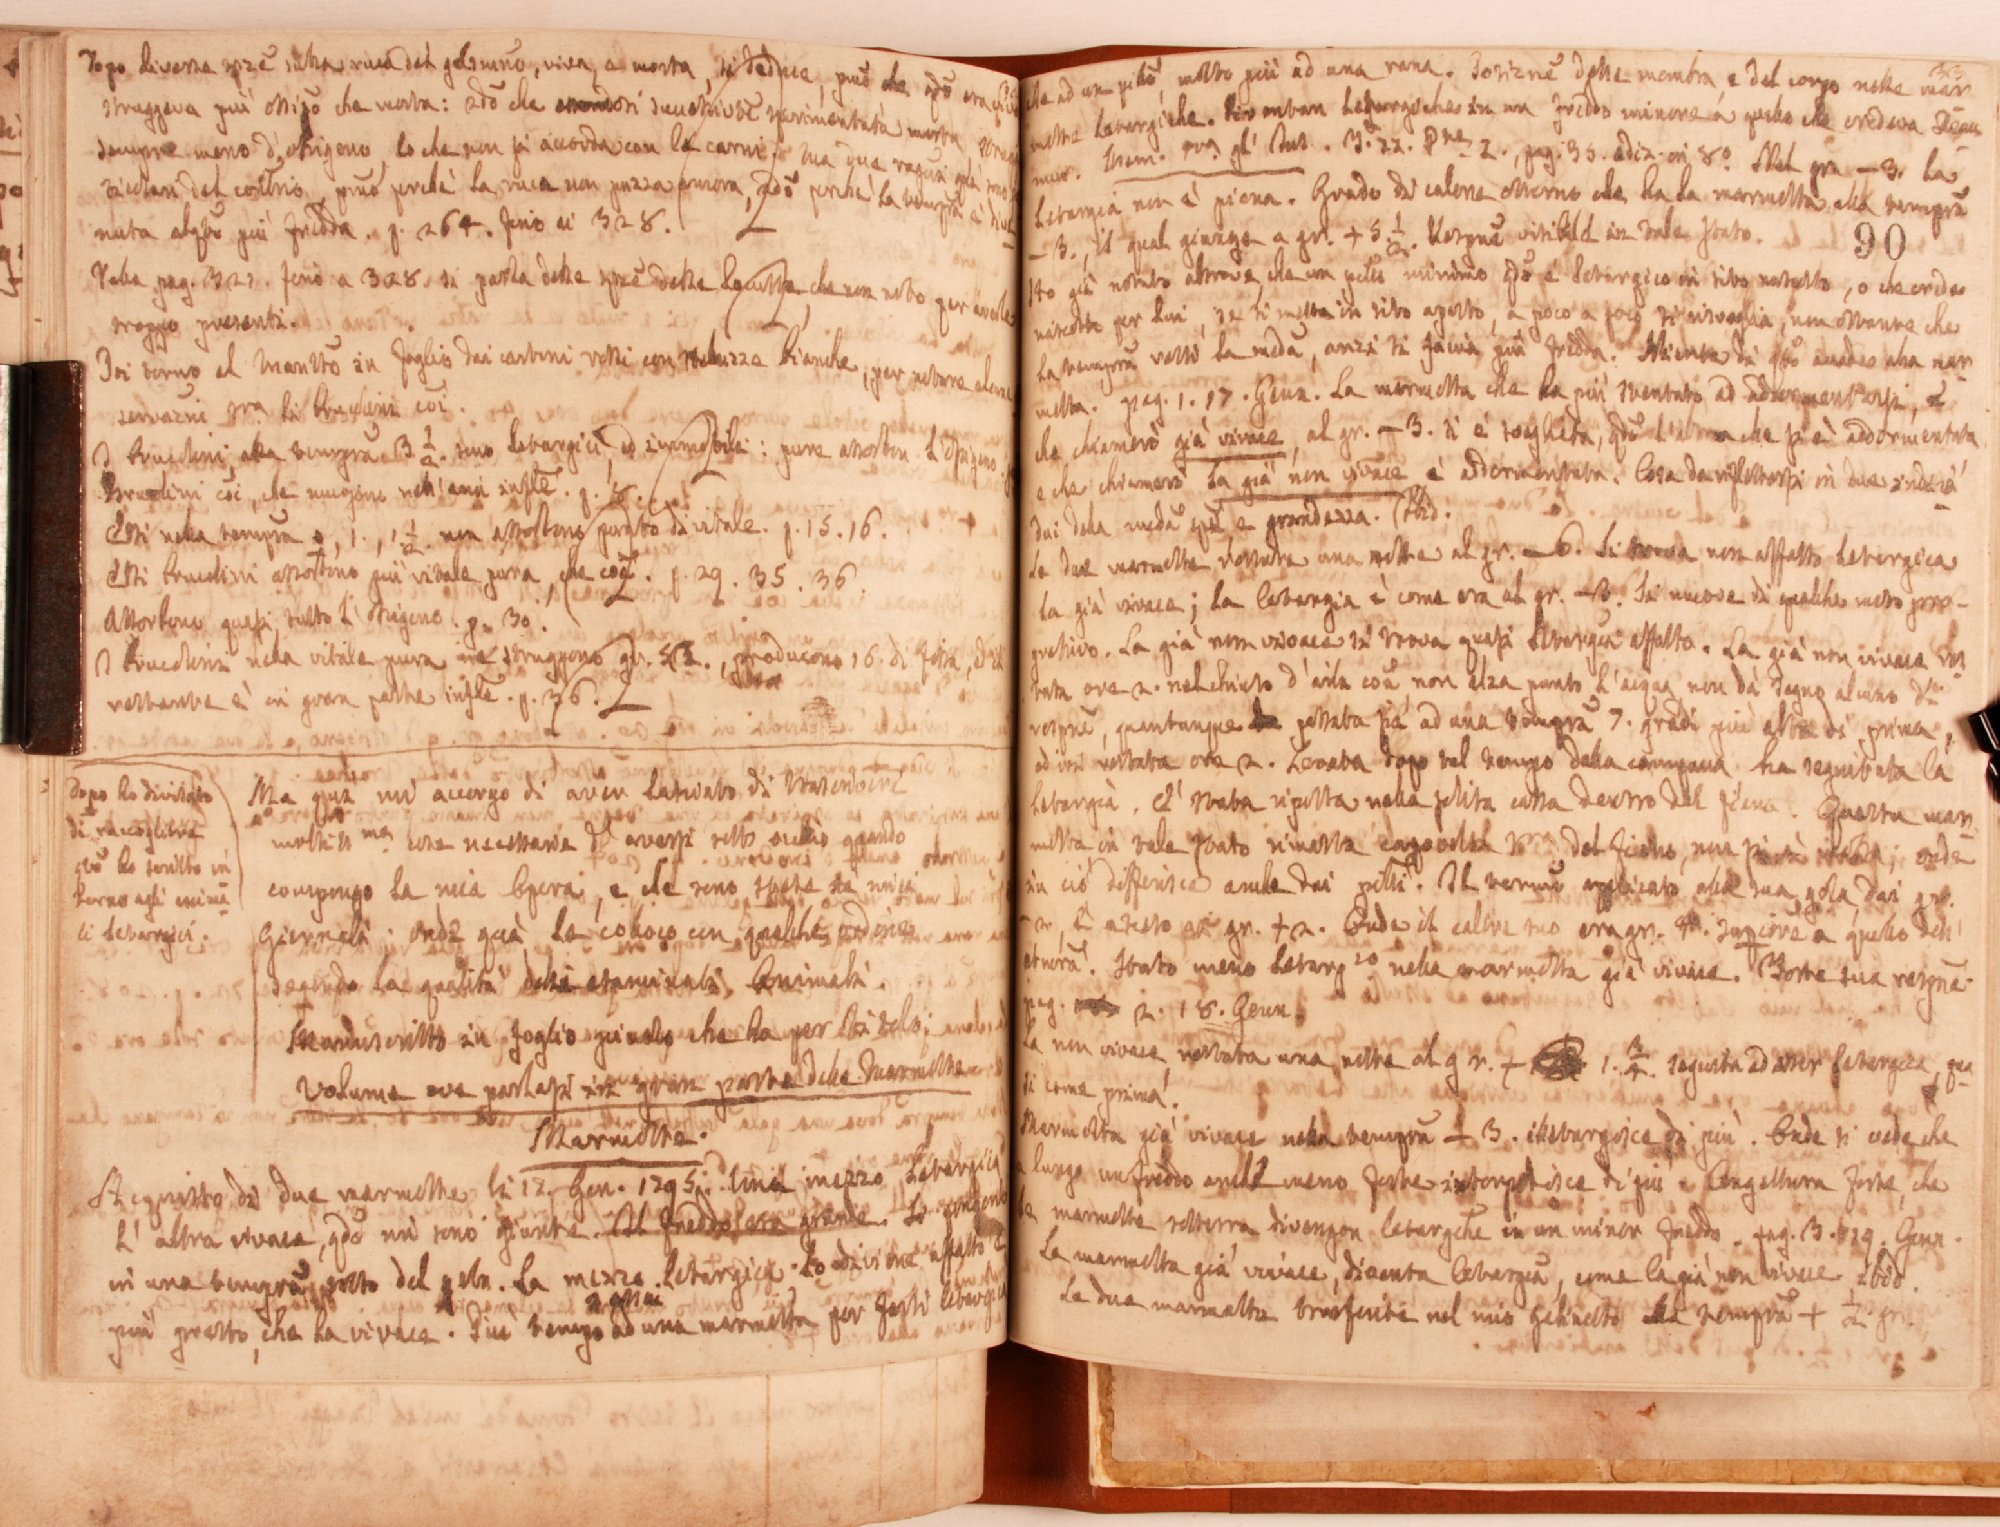 Dopo diverse spze sulla ruca del gelsomino, viva, e morta, si deduce, pmo che qdo era viva
struggeva più ossigo che morta: 2do che successivte sperimentata morta, strugge
sempre meno d'ossigeno, lo che non si accorda con le carni. Ma due ragioni
del contrario, pmo perchè la ruca non puzza ancora, 2do perchè la tempra è dive
nuta alqto più fredda. p. 264. fino ai 328.
Dalla pag. 327. fino a 328. si parla delle spze delle che non noto per averle
troppo presenti.
Poi torno al Manstto in foglio dai cartoni rossi con bianche, per notare alcune
servazni sra li bruchini coi.
I bruchini alla tempra 3 1/2. sono letargici, ed immobili: pure assorbon l'ossigeno.
Bruchini coi, che muojono nell'aria infte. p. 8.
Essi nella tempra 0, 1., 1 1/2. non assorbono punto di vitale. p. 15. 16.
Essi bruchini assorbono più vitale pura, che coe. p. 29. 35. 36.
Assorbono quasi tutto l'ossigeno. p. 30.
I bruchini nella vitale pura ne struggono gr. , producono 16. di
restante è in gran parte infte. p. 36.
Dopo ho divisato
di raccogliere
qto ho scritto in
torno agli anima
li letargici.
Ma quì mi accorgo di aver lasciato di trascrivere
moltissme cose necessarie da aversi sott'occhio quando
compongo la mia Opera, e che sono sparse ne' miei
Giornali: onde quà le coloco con qualche ordine
secondo la qualità delli esaminati Animali.
Manuscritto in foglio che ha per titolo:
Volume ove parlasi in gran parte delle Marmotte
Marmotte.
Acquisto di due marmotte li 12. Gen. 1795. Una mezzo letargica
l'altra vivace, qdo mi sono giunte. Il freddo era grande. Le pongo
in una tempra sotto del gelo. La mezza letargica lo divione affatto
più presto, che la vivace. Più tempo ad una marmotta per farsi letargica
che ad un pipo, molto più ad una rana. Posizne delle membra e del corpo nelle mar
motte letargiche. Diventan letargiche in un freddo minore a quello che credeva
mur. Mem. sra gl'Ins. T. 22. Pme 2., pag. 35. ediz. in 8o. Nel gr. - 3. la
letargia non è piena. Grado di calore esterno che ha la marmotta alla tempra
- 3., il qual giunge a gr. + 5 1/2. Respne visibile in tale stato.
90
Ho già notato altrove, che un pipo minimo qdo è letargico in sito ristretto, o che credesi
nascosto per lui, se si metta in sito aperto, a poco a poco si risveglia, non ostante che
la tempra resti la meda, anzi si facia più fredda. Niente di qto accade alla mar
motta. pag. 1. 17. Genn. La marmotta che ha più stentato ad addormentarsi, e
che chiamerò già vivace, al gr. - 3. si è svegliata, qdo l'altra che si è addormentata
e che chiamerò la già non vivace è addormentata. Cosa da riflettersi in due indivi
dui dela meda spe e grandezza. Ibid.
Le due marmotte restate una notte al gr. - 6. Si trova non affatto letargica
la già vivace; la letargia è come era al gr. - 3. Si muove di qualche moto pro-
gressivo. La già non vivace si trova quasi letargica affatto. La già non vivace res
tata ore 2. nel chiuso d'aria coe, non alza punto l'acqua, non dà segno alcuno di
respne, quantunque passata sia ad una tempra 7. gradi più alta di prima,
ed ivi restata ore 2. Levata dopo tal tempo dalla campana ha seguitata la
letargia. E' stata riposta nella solita cassa dentro del fieno. Questa mar
motta in tale stato rimessa capovolta sra del fieno, onde
in ciò differisce anche dai pipi. Il termmo applicato alla sua gola dai gr.
- 2, è asceso ai gr. + 2. Onde il calore suo era gr. 4. superiore a quello dell'
atmosfa. Stato meno letargco nella marmotta già vivace. Forte sua respne.
pag. 2. 18. Genn.
La non vivace restata una notte al gr. + 1. 3/4. seguita ad esser letargica, qua
si come prima.
Marmotta già vivace nella tempra - 3. illetargisce di più. Onde si vede che
a lungo un freddo anche meno forte intorpidisce di più. Congettura forte, che
le marmotte sotterra divengon letargiche in un minor freddo. pag. 3. 19. Genn.
La marmotta già vivace, diventa letargica, come la già non vivace. Ibid.
Le due marmotte trasferite nel mio gabinetto alla tempra + 1/2 gr.